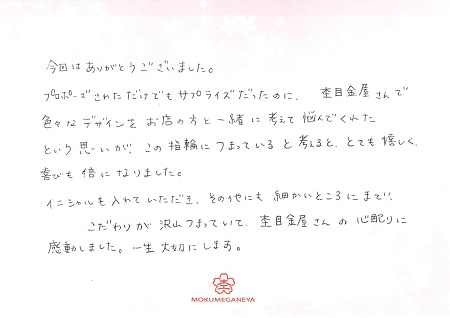 今回はありがとうございました。
プロポーズされただけでもサプライズだったのに、杢目金屋さんで
色々なデザインをお店の方と一緒に考えて悩んでくれた
という思いが、この指輪につまっていると考えると、とても嬉しく、
喜びも倍になりました。
イニシャルも入れていただき、その他にも細かいところにまで、
こだわりが沢山つまっていて、杢目金屋さんの心配りに
感動しました。一生大切にします。
MOKUMEGANEYA